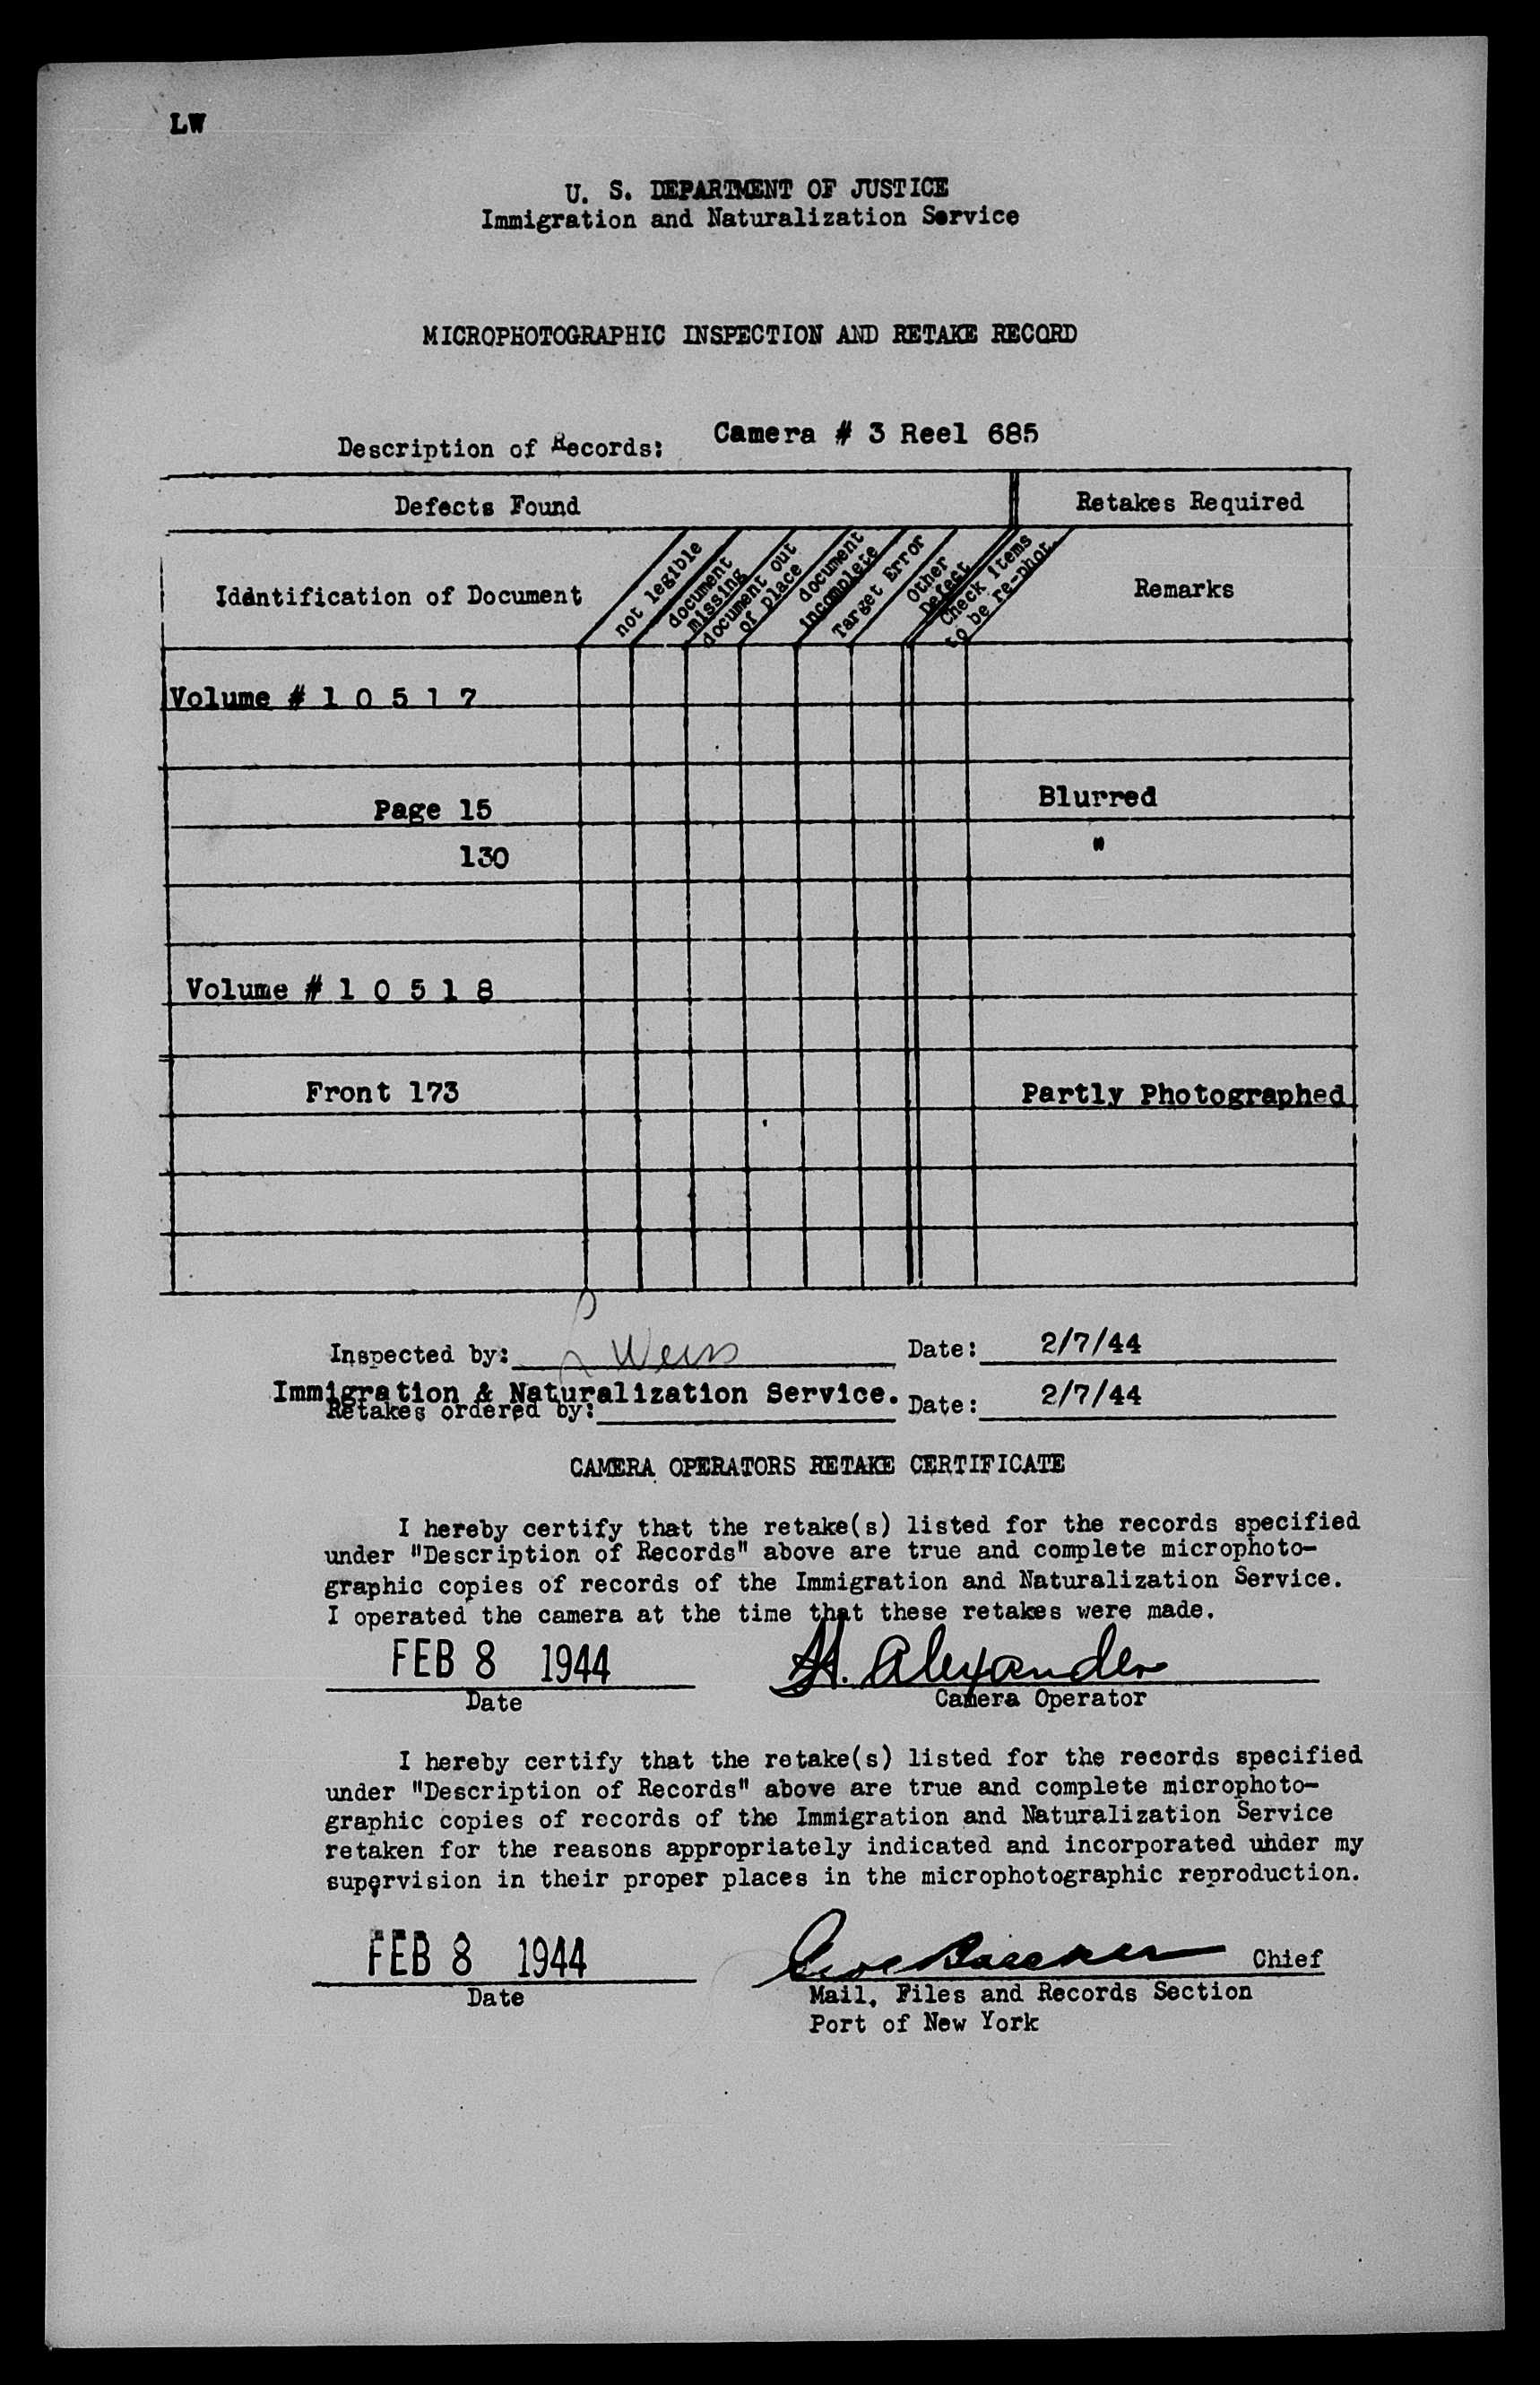 LW
U. S. DEPARTMENT OF JUSTICE
Immigration and Naturalization Service
MICROPHOTOGRAPHIC INSPECTION AND RETAKE RECORD
Description of Records: Camera # 3 Reel 685
Defects Found Retakes Required
Iddntification of Document
not legible
document missing
document out of place
document incomplete
Target Error
Other Defect
Check items to be re-phot.
Remarks
Volume # 1 0 5 1 7
Page 15 Blurred
130 "
Volume # 1 0 5 1 8
Front 173 Partly Photographed
Inspected by: L Weiss Date: 2/7/44
Immigration & Naturalization Service.
Retakes ordered by: Date: 2/7/44
CAMERA OPERATORS RETAKE CERTIFICATE
I hereby certify that the retake(s) listed for the records specified
under "Description of Records" above are true and complete microphoto-
graphic copies of records of the Immigration and Naturalization Service.
I operated the camera at the time that these retakes were made.
FEB 8 1944 H. Alexander
Date Camera Operator
I hereby certify that the retake(s) listed for the records specified
under "Description of Records" above are true and complete microphoto-
graphic copies of records of the Immigration and Naturalization Service
retaken for the reasons appropriately indicated and incorporated under my
supervision in their proper places in the microphotographic reproduction.
FEB 8 1944 Chief
Date Mail, Files and Records Section
Port of New York